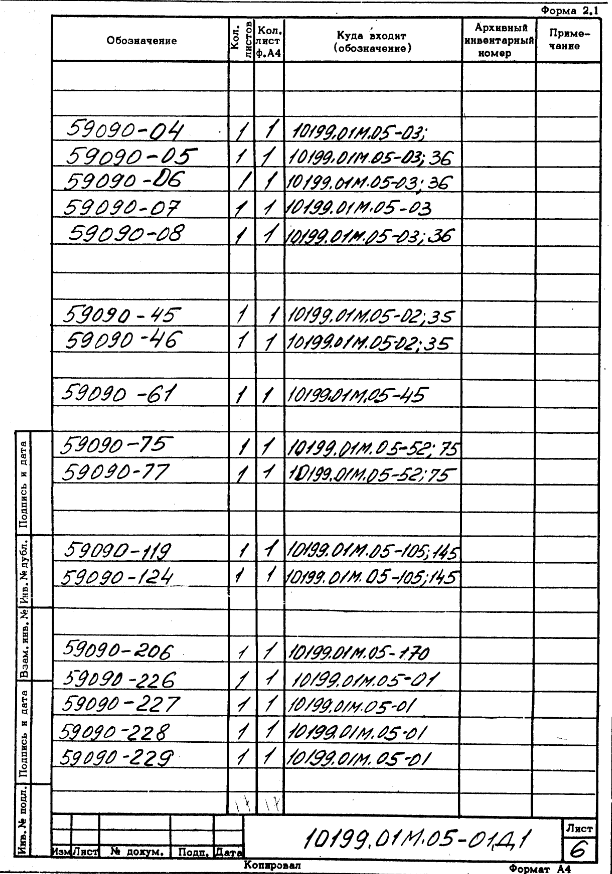 Форма 2.1
Обозначение Кол. листов Кол. лист ф.А4 Куда входит (обозначение) Архивный инвентарный номер Приме- чание
59090-04 1 1 10199.01М.05-03;
59090-05 1 1 10199.01М.05-03; 36
59090-06 1 1 10199.01М.05-03; 36
59090-07 1 1 10199.01М.05-03
59090-08 1 1 10199.01М.05-03; 36
59090-45 1 1 10199.01М.05-02; 35
59090-46 1 1 10199.01М.05-02; 35
59090-61 1 1 10199.01М.05-45
59090-75 1 1 10199.01М.05-52; 75
59090-77 1 1 10199.01М.05-52; 75
59090-119 1 1 10199.01М.05-105; 145
59090-124 1 1 10199.01М.05-105; 145
59090-206 1 1 10199.01М.05-170
59090-226 1 1 10199.01М.05-01
59090-227 1 1 10199.01М.05-01
59090-228 1 1 10199.01М.05-01
59090-229 1 1 10199.01М.05-01
17 17
Подпись и дата
Инв. № дубл.
Взам. инв. №
Подпись и дата
Инв. № подл.
10199.01М.05-01Д1
Лист
6
Изм Лист № докум. Подп. Дата
Копировал Формат А4